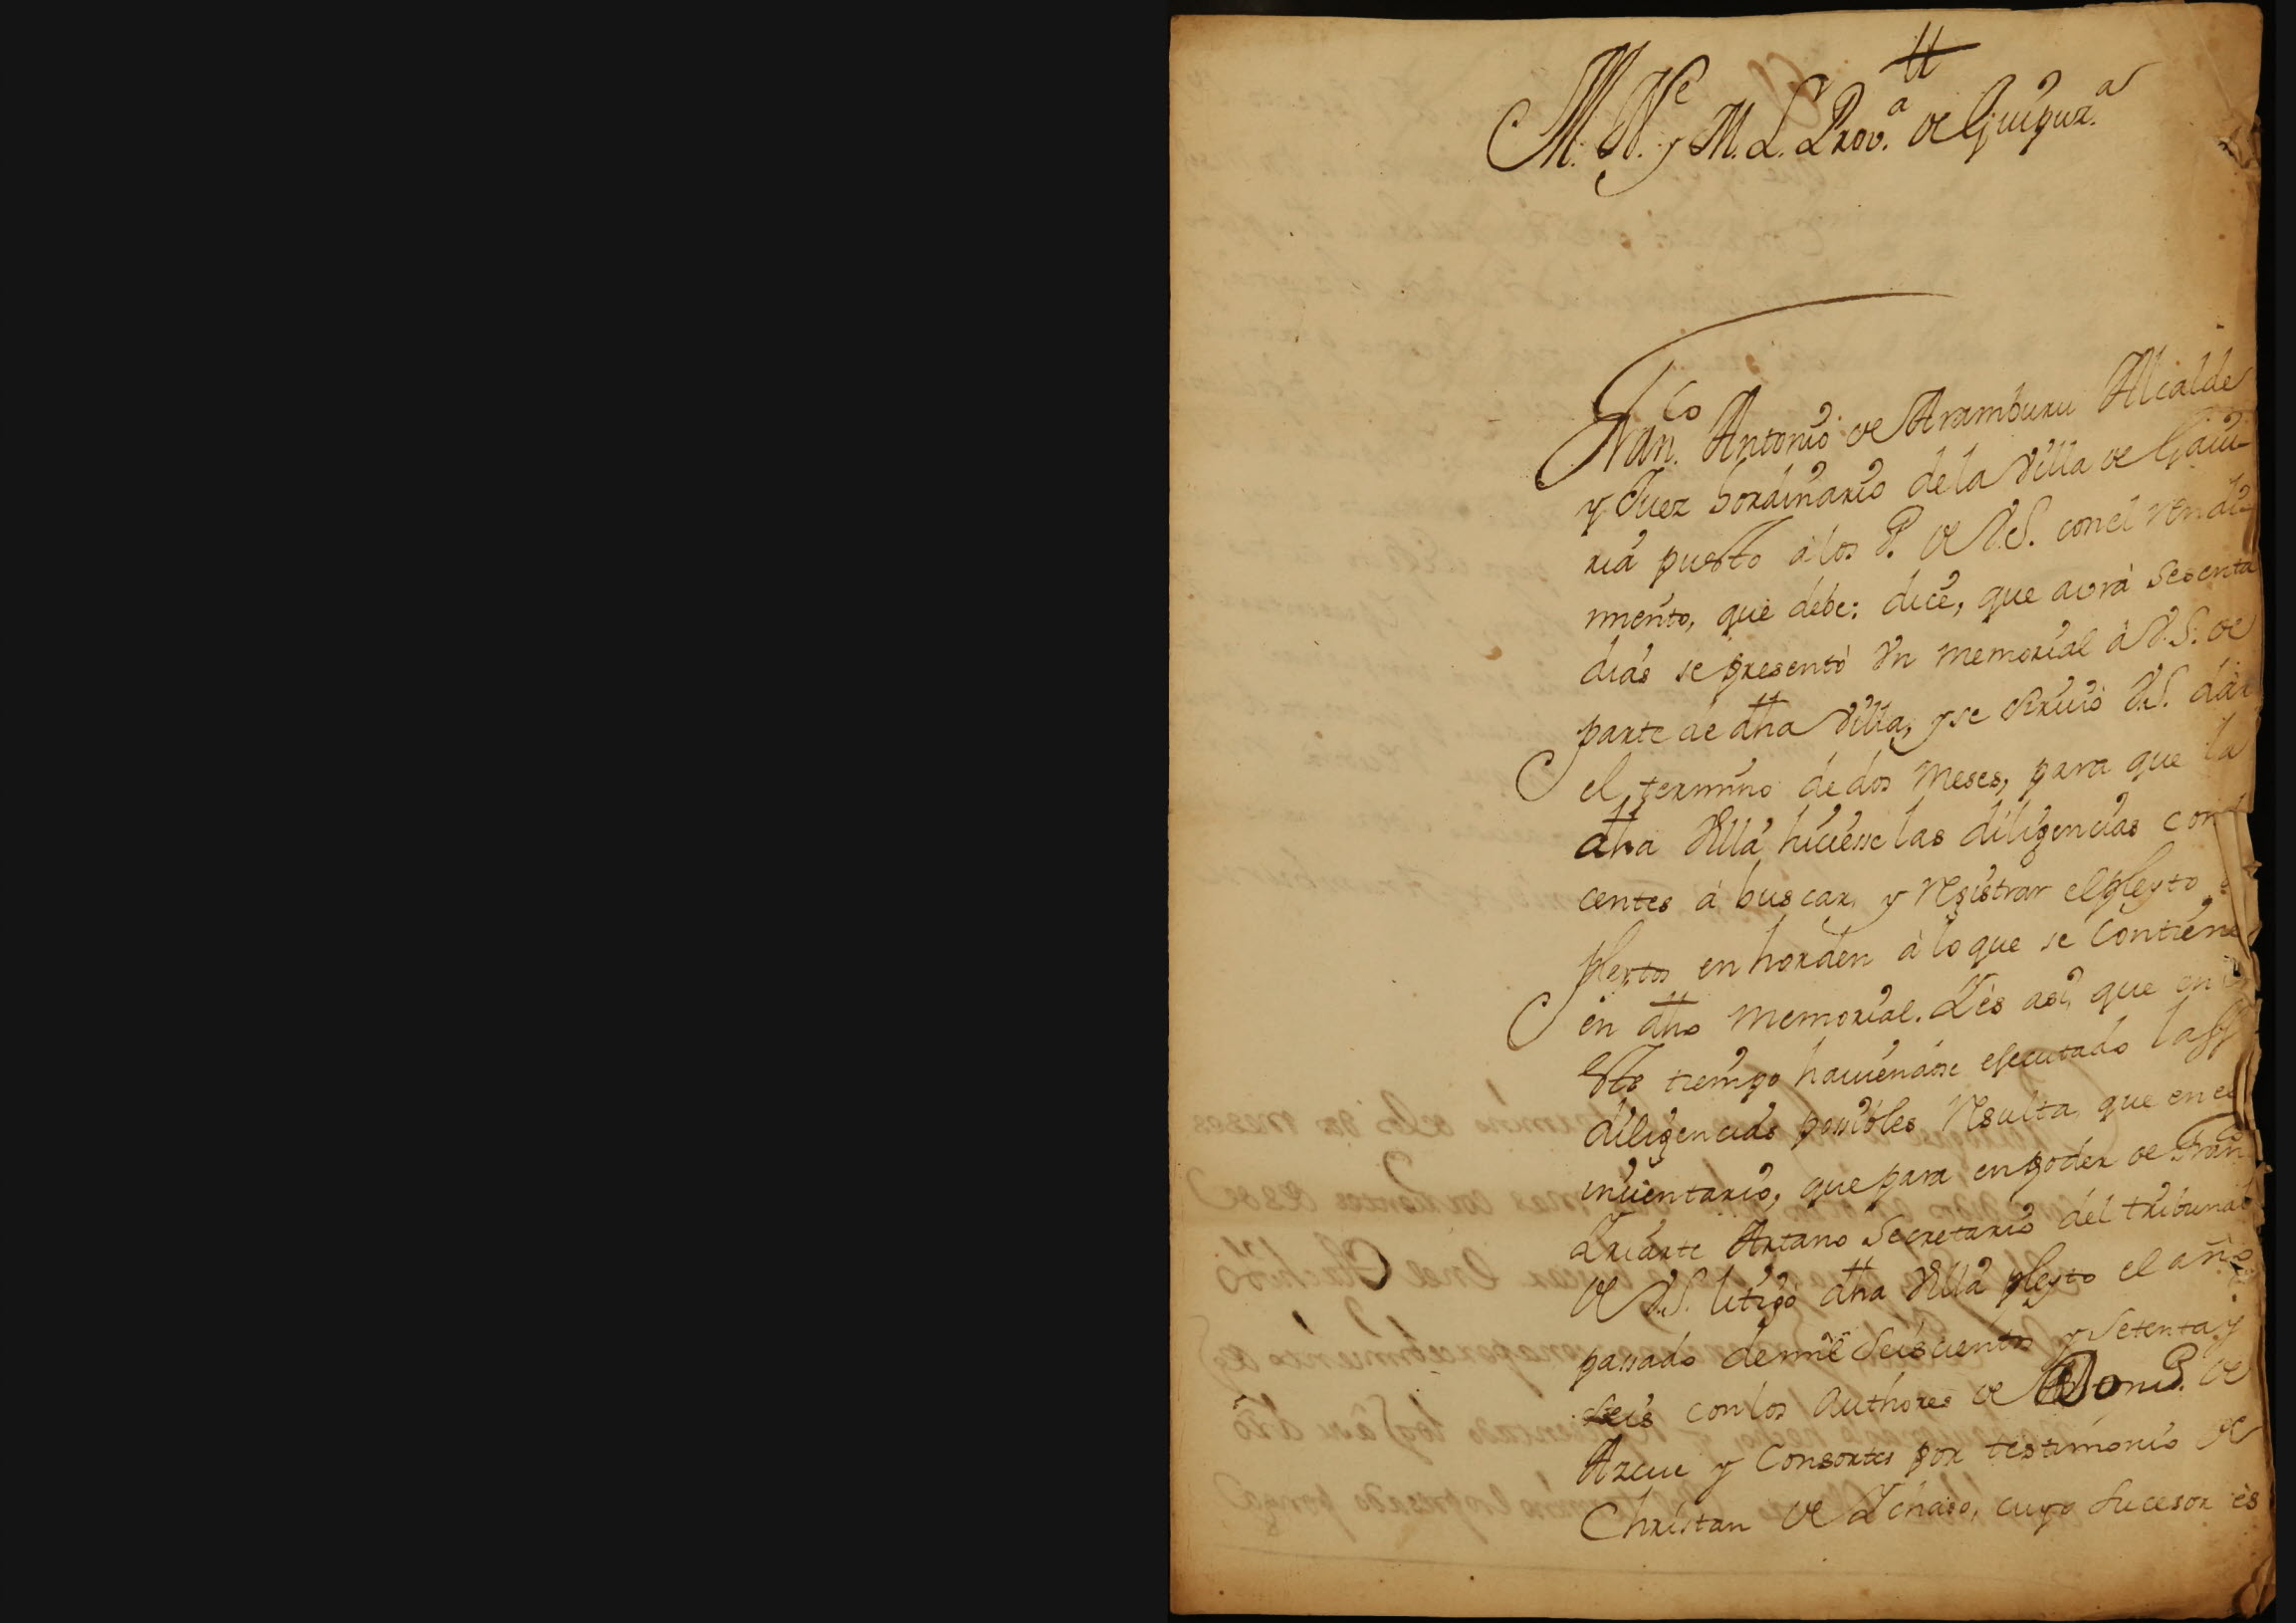 M. Ne. y M. L. Prova. de Guipuza.
Franco. Antonio de Aramburu Alcalde
y Juez hordinario de la Villa de Gaui-
ria puesto à los P. de V.S. con el rendi-
miento, que debe: dice, que aora sesenta
dias se presentò Vn memorial à V.S. de
parte de dha Villa, y se siruiò V.S. dar
el termino de dos meses, para que la
dha Villa hiciesse las diligencias con
centes à buscar, y registrar el pleyto
pleytos en horden à lo que se contiene
en dho memorial. Y es asi, que en
este tiempo hauiendose ejecutado las
diligencias possibles resulta, que en el
inuientario, que para en poder de Fran
Yriarte Artano Secretario del tribunal
de V.S. litigò dha Villa pleyto el año
passado de mil seiscientos y setenta y
seis con los Authores de Don P. de
Azcue y Consortes por testimonio de
Christan de Ychaso, cuyo sucesor ès